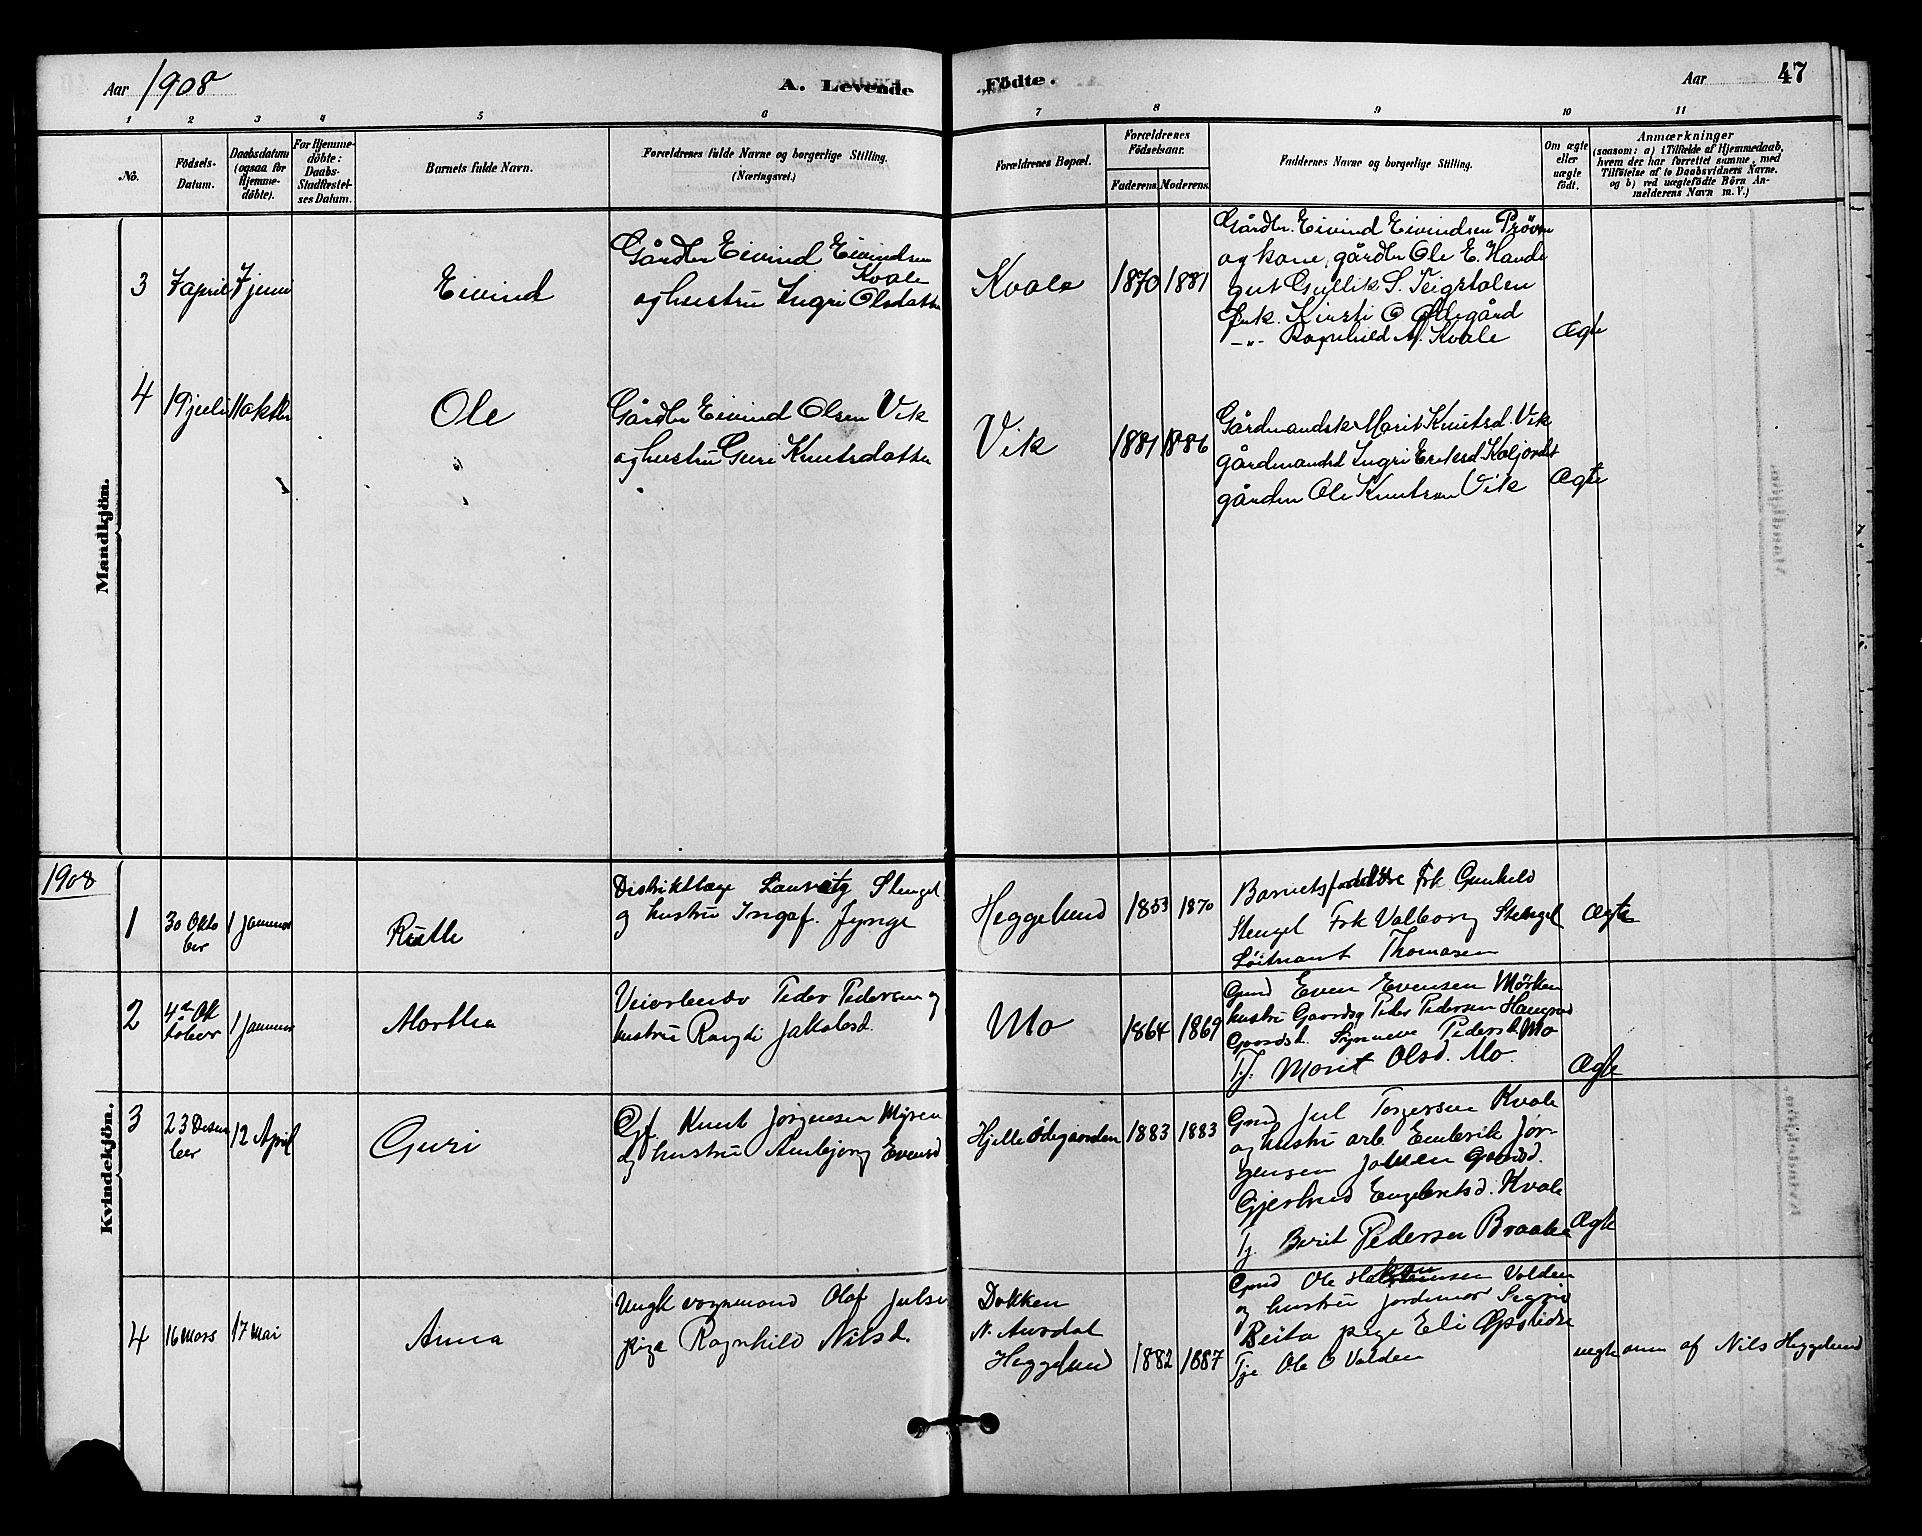 Aar 1908
A. Levende Födte.
Aar 47
1 2 3 4 5 6 7 8 9 10 11
No.
Födsels-
Datum.
Daabsdatum
(ogsaa for
Hjemme-
döbte).
For Hjemme-
döbte:
Daabs-
Stadfæstel-
ses Datum.
Barnets fulde Navn.
Forældrenes fulde Navne og borgerlige Stilling.
(Næringsvei.)
Forældrenes Bopæl.
Forældrenes
Födselsaar.
Faderens. Moderens.
Faddernes Navne og borgerlige Stilling.
Om ægte
eller
uægte
födt.
Anmærkninger
(saasom: a) i Tilfælde af Hjemmedaab,
hvem der har forrettet samme, med
Tilföielse af to Daabsvidners Navne.
og b) ved uægtefödte Börn An-
melderens Navn m. V.)
Mandkjön.
3
7 april
7 juni
Eivind
Gårdbr Eivind Eivindsen
Kvale
og hustru Ingri Olsdatter
Kvale
1870
1881
Gårdbr. Eivind Eivindsen Prøven
og kone, gårdbr Ole E. Hande
gut Gullik S. Teigstølen
Kirsti O Ødegård
-"- Ragnhild M. Kvale
Ægte
4
19 juli
11 oktbr
Ole
Gårdbr Eivind Olsen Vik
og hustru Guri Knutsdatter
Vik
1881
1886
Gårdmandsk Marit Knutsd. Vik
gårdmandsd Ingri Eriksd
Ole Knutsen Vik
Ægte
1908
Kvindekjön.
1
30 Okto
ber
1 januar
Ruth
Distriktlæge Lauritz Stengel
og hustru Inga f. Jynge
Heggelund
1853
1870
Barnets forældre Frk Gunhild
Stengel Frk Valborg Stengel
Löitnant Thomasen
Ægte
2
4de Ok
tober
1 januar
Martha
Veiarbeider Peder Pedersen og
hustru Rangdi Jakobsd.
Mo
1864
1869
Gmd Even Evensen Mørken
hustru Gaardsg Peder Pedersen
Gaardsd. Synneve Pedersd. Mo
Tj. Marit Olsd. Mo.
Ægte
3
23 Desem
ber
12 April
Guri
Gf. Knut Jørgensen Myren
og hustru Anbjørg Evensd
Hjelle Ødegaarden
1883
1883
Gmd Jul Torgersen Kvale
og hustru arb Embrik Jør-
gensen Gaardsd.
Gjertrud Engebretsd. Kvale
Tj. Berit Pedersen Braaten
Ægte
4
16 Mars
17 Mai
Anna
Ungk vognmand Olaf Julsen
pige Ragnhild Nilsd.
Dokken
N. Aurdal
Heggelund
1882
1887
Gmd Ole Volden
og hustru jordemor Sigrid
Beito pige Eli
Tje Ole O Volden
uægte
anm af Nils Heggelund